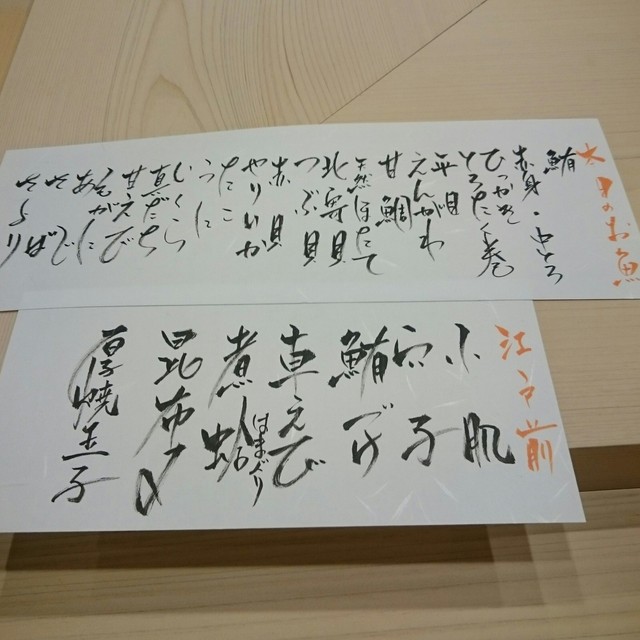 本日のお魚
鮪
赤身・中とろ
ひっかき
とろたく巻
平目
えんがわ
甘鯛
天然ほたて
北寄貝
つぶ貝
赤貝
やりいか
たこ
うに
いくら
真だち
甘えび
毛がに
あじ
さば
さより
江戸前
小肌
穴子
鮪づけ
車えび
煮蛤
はまぐり
昆布〆
厚焼玉子